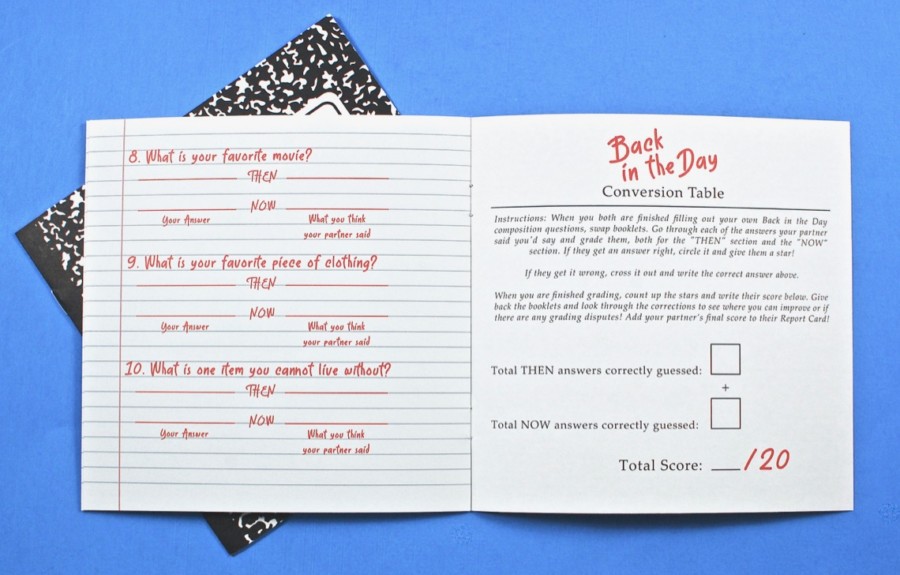 8. What is your favorite movie?
THEN
NOW
Your Answer What you think
your partner said
9. What is your favorite piece of clothing?
THEN
NOW
Your Answer What you think
your partner said
10. What is one item you cannot live without?
THEN
NOW
Your Answer What you think
your partner said
Back
in the Day
Conversion Table
Instructions: When you both are finished filling out your own Back in the Day
composition questions, swap booklets. Go through each of the answers your partner
said you'd say and grade them, both for the "THEN" section and the "NOW"
section. If they get an answer right, circle it and give them a star!
If they get it wrong, cross it out and write the correct answer above.
When you are finished grading, count up the stars and write their score below. Give
back the booklets and look through the corrections to see where you can improve or if
there are any grading disputes! Add your partner's final score to their Report Card!
Total THEN answers correctly guessed:
+
Total NOW answers correctly guessed:
Total Score: ___/20